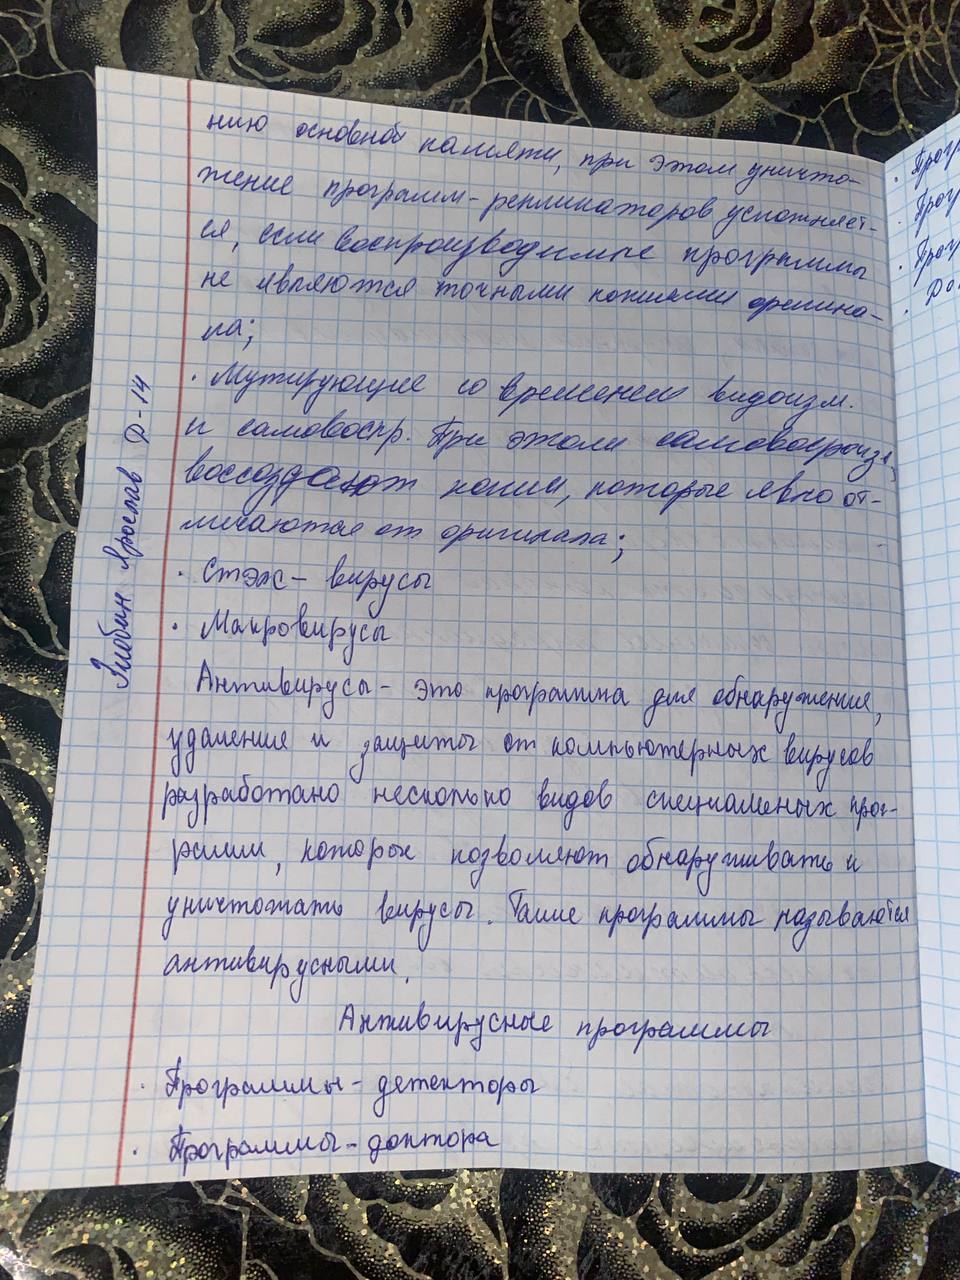 нию основной памяти, при этом уничто-
жение программ-репликаторов усложняет-
ся, если воспроизводимые программы
не являются точными копиями оригина-
ла;
· Мутирующие со временем видоизм.
и самовоспр. При этом самовоспроизв,
воссоздают копии, которые явно от-
личаются от оригинала;
· Стэлс - вирусы
· Макровирусы
Антивирусы - это программа для обнаружения,
удаления и защиты от компьютерных вирусов
разработано несколько видов специальных прог-
рамм, которые позволяют обнаруживать и
уничтожать вирусы. Такие программы называются
антивирусными.
Антивирусные программы
· Программы - детекторы
· Программы - доктора
Злобин Ярослав Д-14
· Прогр
· Прогр
· Прогр